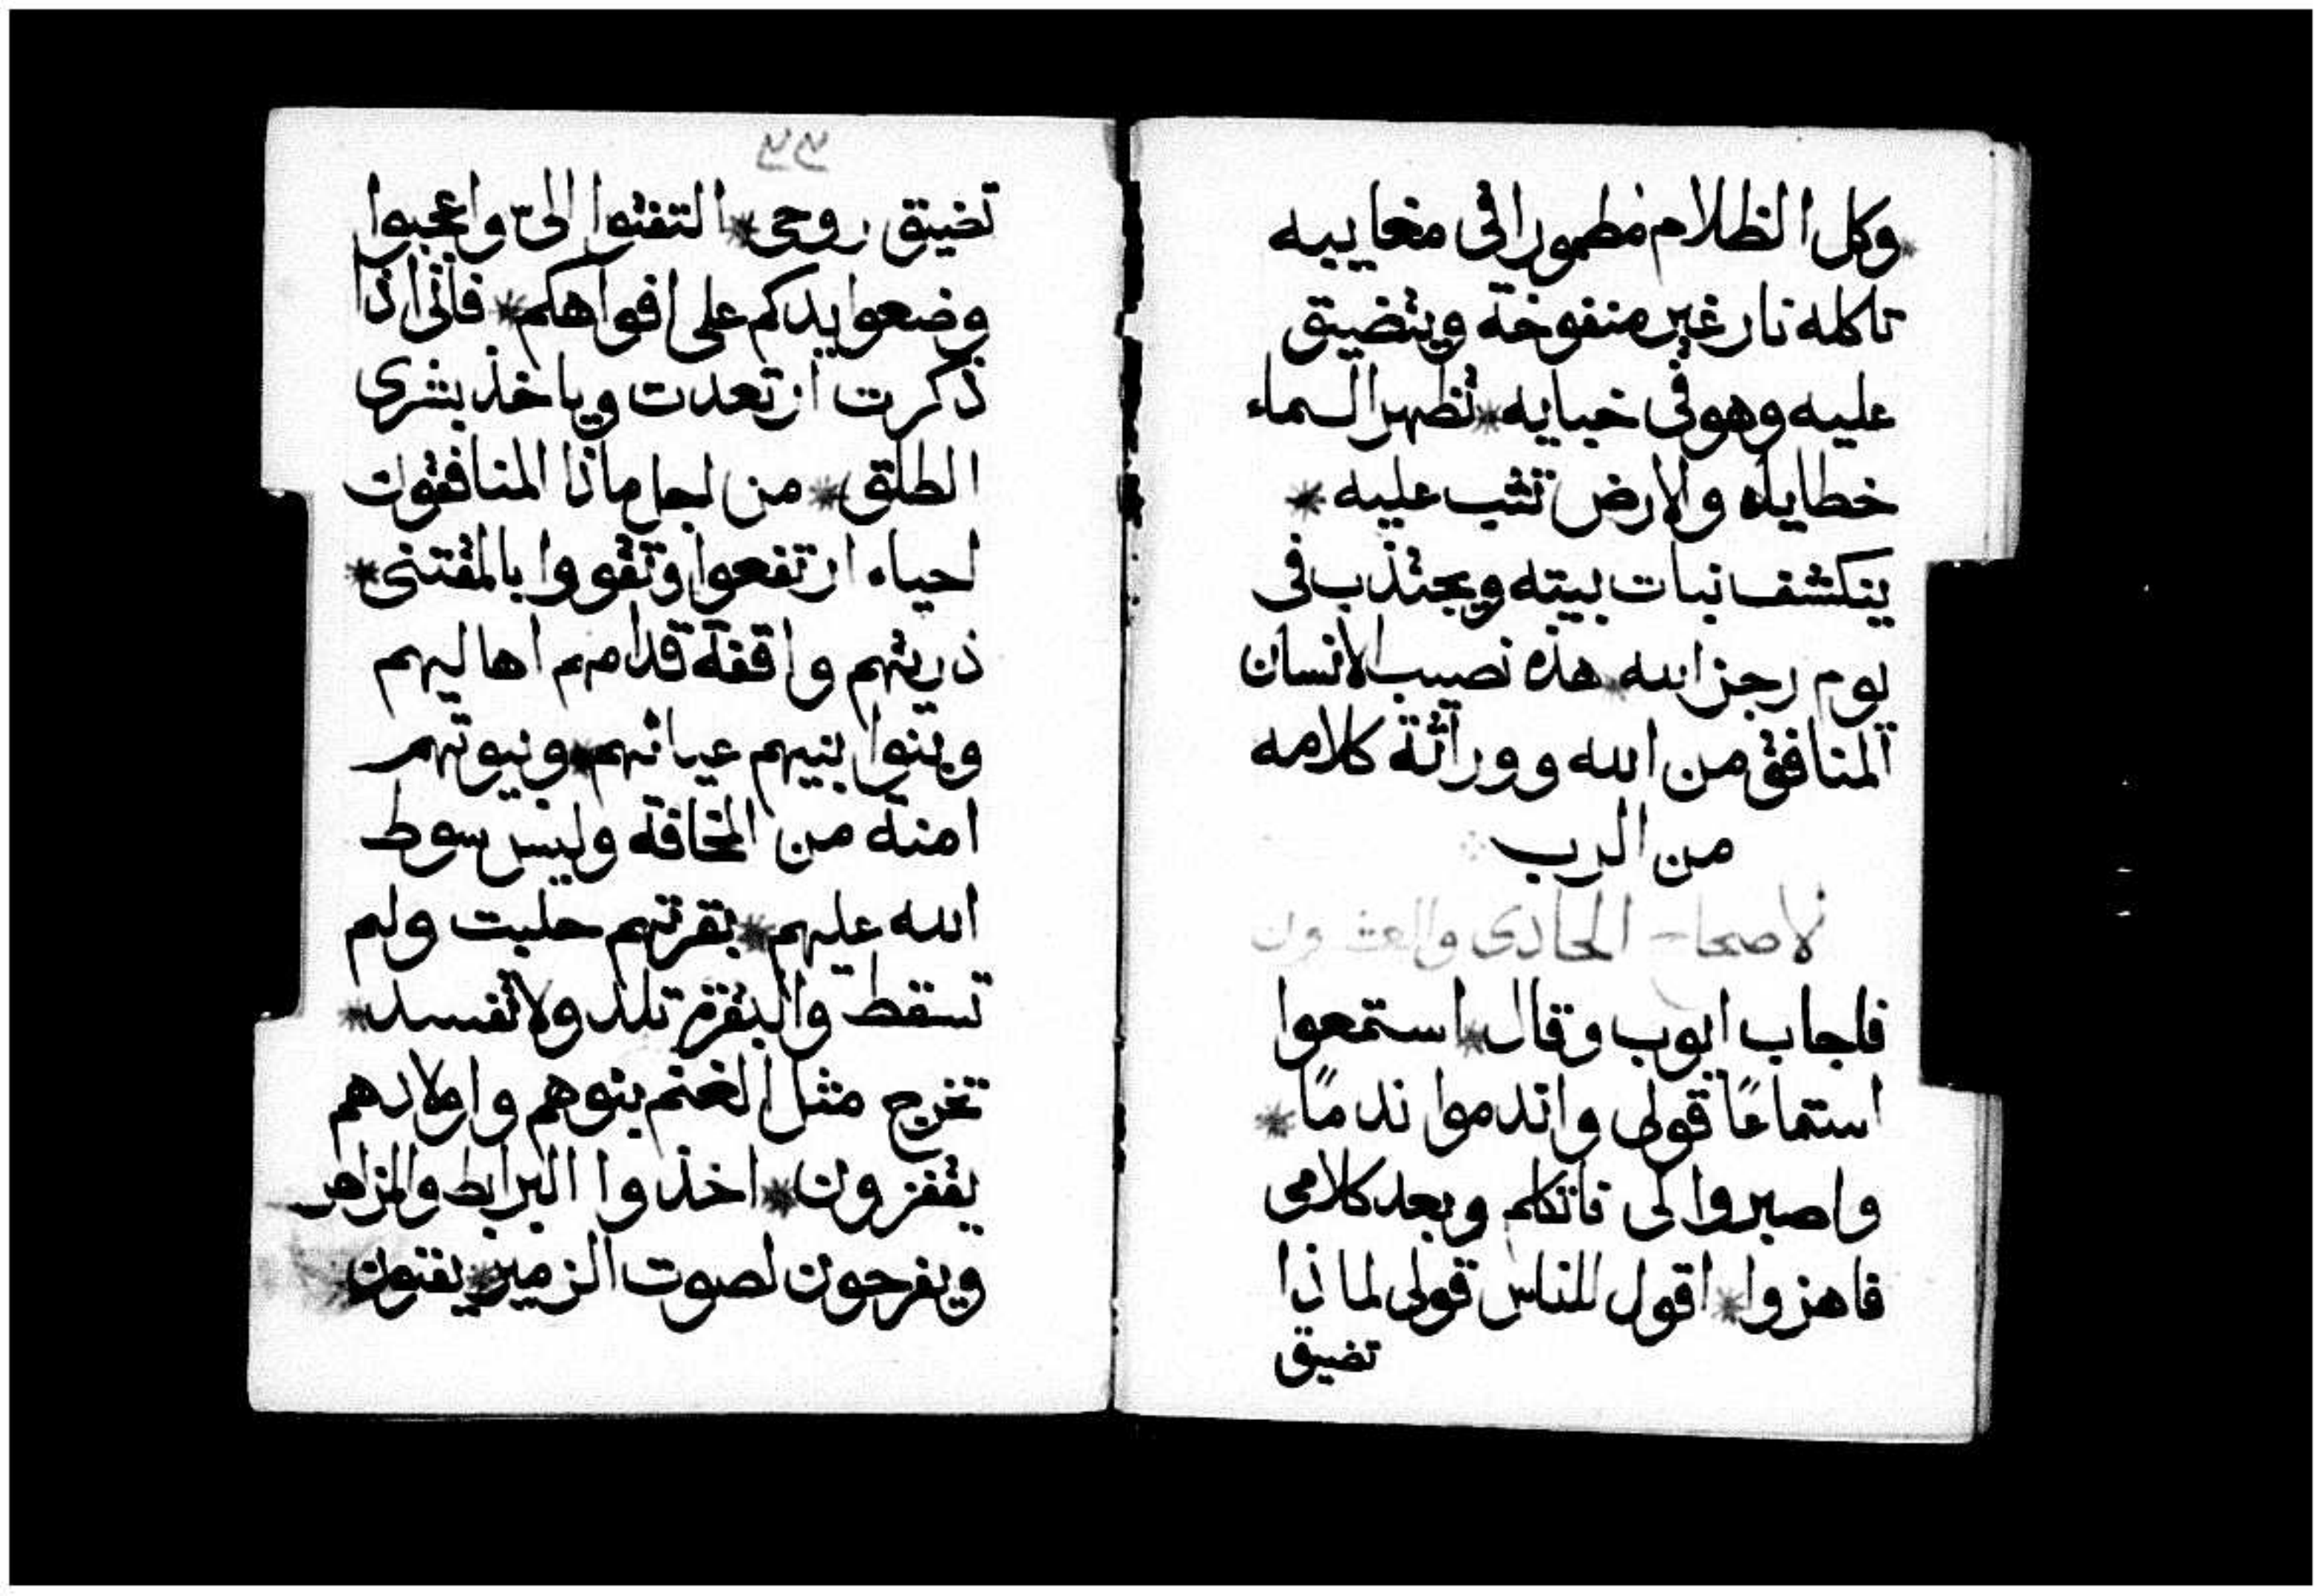 وكل الظلام مطمورا فى مغاييبه
تاكله نار غير منفوخة ويتضيق
عليه وهو فى خبايه * تظهر السماء
خطاياه والارض تثب عليه *
ينكشف نبات بيته ويجتذب فى
يوم رجز الله * هذه نصيب الانسان
المنافق من الله ووراثة كلامه
من الرب
الاصحاح الحادى والعشرون
فاجاب ايوب وقال * استمعوا
استماعًا قولى واندموا ندمًا *
واصبروا لى فاتكلم وبعد كلامى
فاهزوا * اقول للناس قولى لماذا
تضيق
تضيق روحى * التفتوا الىّ واعجبوا
وضعوا يدكم على افواهكم * فانى اذا
ذكرت ارتعدت وياخذ بشرى
الطلق * من اجل ماذا المنافقون
احياء ارتفعوا وتقووا بالمقتنى *
ذريتهم واقفة قدامهم اهاليهم
وبنوا بنيهم عيانهم * وبيوتهم
امنة من المخافة وليس سوط
الله عليهم * بقرتهم حلبت ولم
تسقط والبقرة تلد ولا تفسد *
تخرج مثل الغنم بنوهم واولادهم
يقفزون * اخذوا البرابط والمزاهر
ويفرحون لصوت الزمير * يفنون